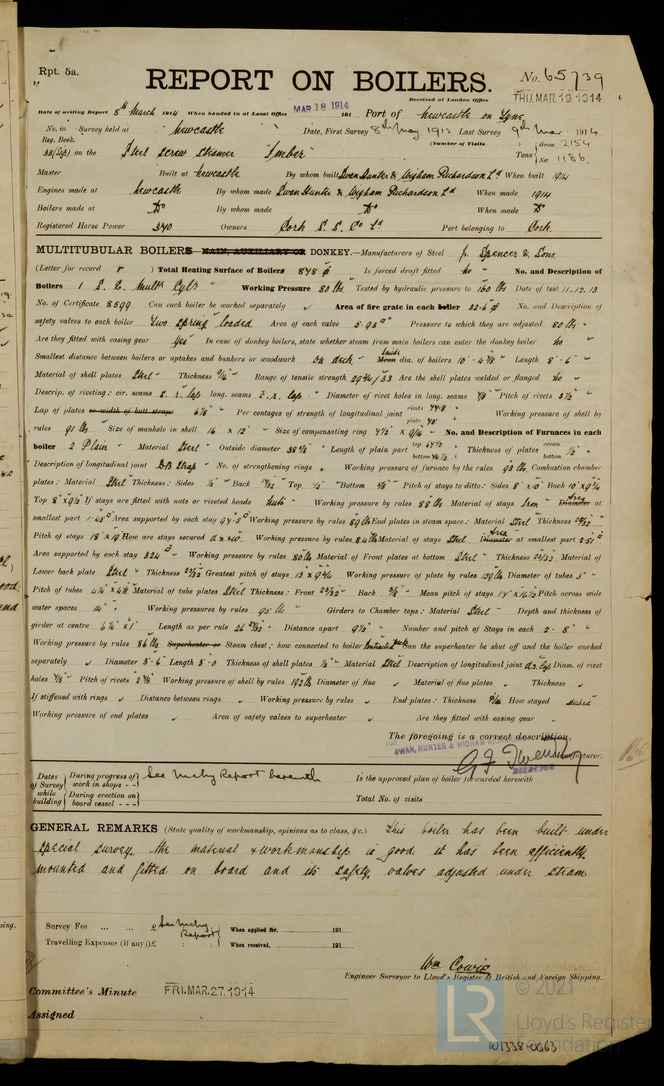 Rpt. 5a.
REPORT ON BOILERS.
No. 65739
Received at London Office THU. MAR. 19. 1914
Date of writing Report 8th March 1914 When handed in at Local Office MAR 18 1914 191 Port of Newcastle on Tyne
No. in Reg. Book. Survey held at Newcastle Date, First Survey 8th May 191 Last Survey 9th Mar 1914
(Number of Visits
35 (Sup) on the Steel Screw Steamer "Imber" Tons Gross 2154 Net 1186
Master Built at Newcastle By whom built Swan Hunter & Wigham Richardson Ld When built 1914
Engines made at Newcastle By whom made Swan Hunter & Wigham Richardson Ld When made 1914
Boilers made at Do By whom made Do When made Do
Registered Horse Power 340 Owners Cork S. S. Co Ld Port belonging to Cork
MULTITUBULAR BOILERS MAIN, AUXILIARY OR DONKEY.—Manufacturers of Steel J. Spencer & Sons
(Letter for record r ) Total Heating Surface of Boilers 848 Is forced draft fitted no No. and Description of
Boilers 1 S. E. Mult Cyl Working Pressure 80 lbs Tested by hydraulic pressure to 160 lbs Date of test 11.12.13
No. of Certificate 8599 Can each boiler be worked separately ✓ Area of fire grate in each boiler 32.6 No. and Description of
safety valves to each boiler Two Spring loaded Area of each valve 5.93 Pressure to which they are adjusted 80 lbs
Are they fitted with easing gear Yes In case of donkey boilers, state whether steam from main boilers can enter the donkey boiler no
Smallest distance between boilers or uptakes and bunkers or woodwork on deck Inside Mean dia. of boilers 10'-4 7/8" Length 8'-6"
Material of shell plates Steel Thickness 9/16" Range of tensile strength 29 3/4/33 Are the shell plates welded or flanged no
Descrip. of riveting: cir. seams S. R. lap long. seams T. R. lap Diameter of rivet holes in long. seams 7/8" Pitch of rivets 3 1/2"
Lap of plates or width of butt straps 6 7/8" Per centages of strength of longitudinal joint rivets 74.8 plate 75 Working pressure of shell by
rules 91 lbs Size of manhole in shell 16 x 12" Size of compensating ring 7 1/2" x 9/16 No. and Description of Furnaces in each
boiler 2 Plain Material Steel Outside diameter 38 1/2" Length of plain part top 67 1/2 bottom Thickness of plates crown bottom 1/2"
Description of longitudinal joint DB Strap No. of strengthening rings Working pressure of furnace by the rules 93 lbs Combustion chamber
plates: Material Steel Thickness: Sides 1/2" Back 17/32" Top 1/2" Bottom Pitch of stays to ditto: Sides 8" x 10" Back 10" x 9 3/4
Top 8" x 9 1/2 If stays are fitted with nuts or riveted heads nuts Working pressure by rules 88 lbs Material of stays Iron Area Diameter at
smallest part 1.45 Area supported by each stay 97.5 Working pressure by rules 89 lbs End plates in steam space: Material Steel Thickness 29/32
Pitch of stays 18" x 18 How are stays secured d n w Working pressure by rules 84 lbs Material of stays Steel Area Diameter at smallest part 2.51
Area supported by each stay 324 Working pressure by rules 80 lbs Material of Front plates at bottom Steel Thickness 29/32 Material of
Lower back plate Steel Thickness 29/32 Greatest pitch of stays 13 x 9 3/4 Working pressure of plate by rules Diameter of tubes 3"
Pitch of tubes 4 1/4 x 4 1/8 Material of tube plates Steel Thickness: Front 29/32 Back Mean pitch of stays Pitch across wide
water spaces 14" Working pressures by rules 95 lbs Girders to Chamber tops: Material Steel Depth and thickness of
girder at centre 6 1/4 x 1 Length as per rule 26 Distance apart 9 1/2" Number and pitch of Stays in each 2 - 8"
Working pressure by rules 86 lbs Superheater or Steam chest; how connected to boiler Can the superheater be shut off and the boiler worked
separately Diameter 3'-6" Length 3'-0 Thickness of shell plates 1/2" Material Steel Description of longitudinal joint d.r. lap Diam. of rivet
holes 7/8" Pitch of rivets 2 7/8" Working pressure of shell by rules 192 lbs Diameter of flue Material of flue plates Thickness
If stiffened with rings Distance between rings Working pressure by rules End plates: Thickness 9/16 How stayed
Working pressure of end plates Area of safety valves to superheater Are they fitted with easing gear
The foregoing is a correct description,
SWAN, HUNTER & WIGHAM RICHARDSON
Manufacturer.
DIRECTOR
Dates of Survey while building
During progress of work in shops - -
During erection on board vessel - - -
See Mchy Report herewith
Is the approved plan of boiler forwarded herewith
Total No. of visits
GENERAL REMARKS (State quality of workmanship, opinions as to class, &c.) This boiler has been built under
special survey. the material & workmanship is good. it has been efficiently
mounted and fitted on board and its safety valves adjusted under steam
Survey Fee ... ... £ See Mchy Report When applied for, 191
Travelling Expenses (if any) £ When received, 191
Wm Cowie
Engineer Surveyor to Lloyd's Register of British and Foreign Shipping.
Committee's Minute FRI. MAR. 27. 1914
Assigned
LR
© 2021
Lloyd's Register
Foundation
W1338-0063